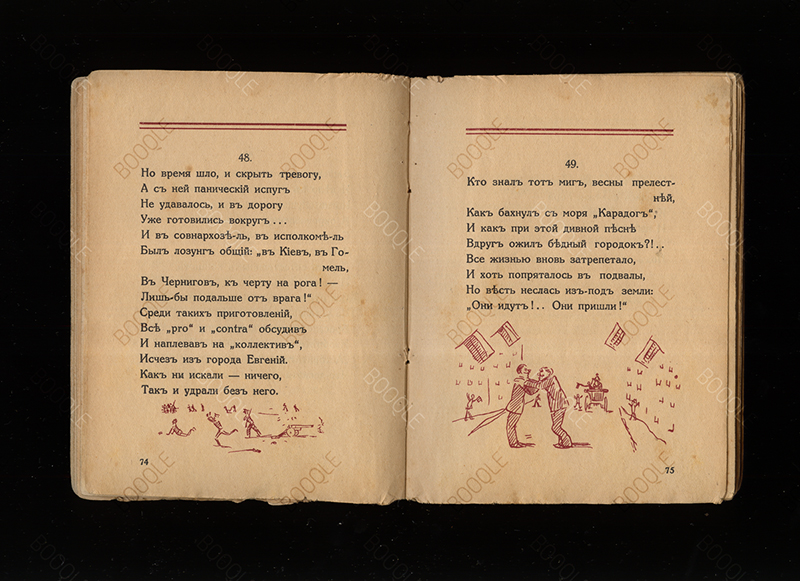 48.
Но время шло, и скрыть тревогу,
А съ ней паническій испугъ
Не удавалось, и въ дорогу
Уже готовились вокругъ...
И въ совнархозѣ-ль, въ исполкомѣ-ль
Былъ лозунгъ общій: „въ Кіевъ, въ Го-
мель,
Въ Черниговъ, къ черту на рога! —
Лишь-бы подальше отъ врага!“
Среди такихъ приготовленій,
Всѣ „pro“ и „contra“ обсудивъ
И наплевавъ на „коллективъ“,
Исчезъ изъ города Евгеній.
Какъ ни искали — ничего,
Такъ и удрали безъ него.
74
49.
Кто зналъ тотъ мигъ, весны прелест-
нѣй,
Какъ бахнулъ съ моря „Карадогъ“,
И какъ при этой дивной пѣснѣ
Вдругъ ожилъ бѣдный городокъ?!..
Все жизнью вновь затрепетало,
И хоть попряталось въ подвалы,
Но вѣсть неслась изъ-подъ земли:
„Они идутъ!.. Они пришли!“
75
BOOQLE